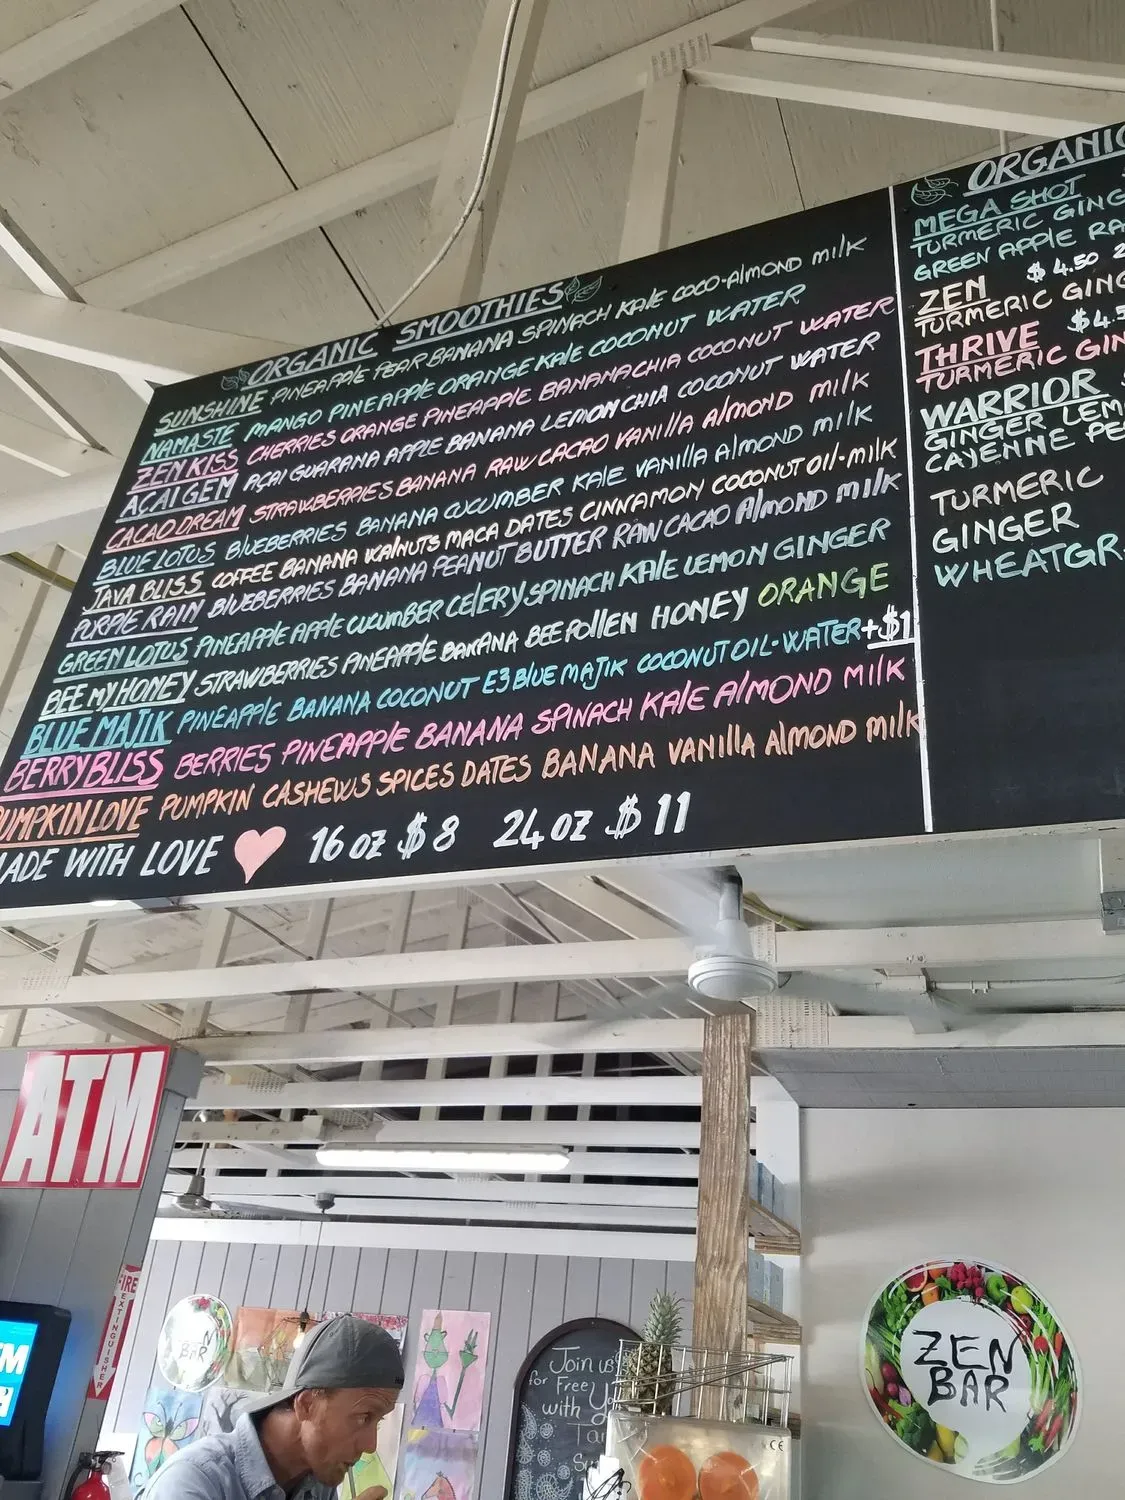 ORGANIC SMOOTHIES
SUNSHINE PINEAPPLE PEAR BANANA SPINACH KALE COCO-ALMOND MILK
NAMASTE MANGO PINEAPPLE ORANGE KALE COCONUT WATER
ZEN KISS CHERRIES ORANGE PINEAPPLE BANANA CHIA COCONUT WATER
AÇAI GEM AÇAI GUARANA APPLE BANANA LEMON CHIA COCONUT WATER
CACAO DREAM STRAWBERRIES BANANA RAW CACAO VANILLA ALMOND MILK
BLUE LOTUS BLUEBERRIES BANANA CUCUMBER KALE VANILLA ALMOND MILK
JAVA BLISS COFFEE BANANA WALNUTS MACA DATES CINNAMON COCONUT OIL-MILK
PURPLE RAIN BLUEBERRIES BANANA PEANUT BUTTER RAW CACAO ALMOND MILK
GREEN LOTUS PINEAPPLE APPLE CUCUMBER CELERY SPINACH KALE LEMON GINGER
BEE MY HONEY STRAWBERRIES PINEAPPLE BANANA BEE POLLEN HONEY ORANGE
BLUE MAJIK PINEAPPLE BANANA COCONUT E3 BLUE MAJIK COCONUT OIL-WATER +$1
BERRY BLISS BERRIES PINEAPPLE BANANA SPINACH KALE ALMOND MILK
PUMPKIN LOVE PUMPKIN CASHEWS SPICES DATES BANANA VANILLA ALMOND MILK
MADE WITH LOVE 16 OZ $8 24 OZ $11
ORGANIC
MEGA SHOT
TURMERIC GING
GREEN APPLE RA
ZEN $4.50 2
TURMERIC GING
THRIVE $4.5
TURMERIC GIN
WARRIOR
GINGER LEM
CAYENNE PE
TURMERIC
GINGER
WHEATGR
ATM
FIRE EXTINGUISHER
ZEN
BAR
Join us
for Free
with
ZEN
BAR